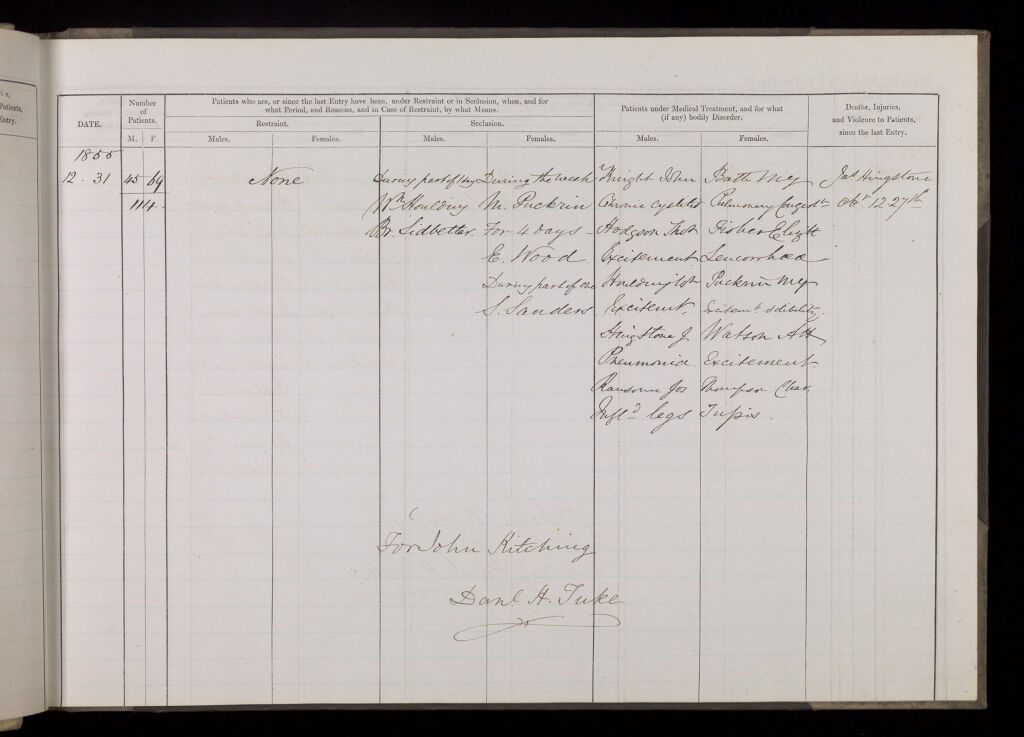 DATE.
Number of Patients.
M. F.
Patients who are, or since the last Entry have been, under Restraint or in Seclusion, when, and for
what Period, and Reasons, and in Case of Restraint, by what Means.
Restraint.
Males. Females.
Seclusion.
Males. Females.
Patients under Medical Treatment, and for what
(if any) bodily Disorder.
Males. Females.
Deaths, Injuries,
and Violence to Patients,
since the last Entry.
1855
12 . 31 45 69 None. During part of 1 day During the week Knight John Bath My Jas Hingstone
114. Wm Houlding M. Puckrin Chronic Cystitis Pulmonary Congestn Obt 12 27th
Br. Lidbetter. For 4 days - Hodgson Thos Fisher Elizth
E. Wood Excitement Leucorrhœa
During part of one Puckrin My
S. Sanders Excitemt. Excitemt. & debility.
Hingstone J Watson
Pneumonia. Excitement.
Ransome Jos Thompson Char.
Infld legs Tussis.
For John Kitching
Danl H. Tuke
Patients,
Entry.